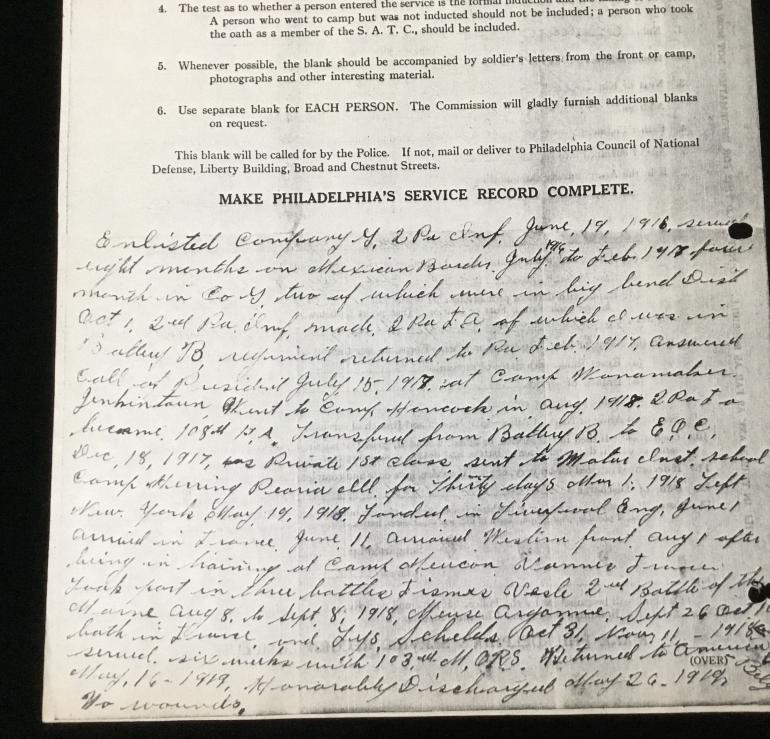 4. The test as to whether a person entered the service is the formal induction and the
A person who went to camp but was not inducted should not be included; a person who took
the oath as a member of the S. A. T. C., should be included.
5. Whenever possible, the blank should be accompanied by soldier's letters from the front or camp,
photographs and other interesting material.
6. Use separate blank for EACH PERSON. The Commission will gladly furnish additional blanks
on request.
This blank will be called for by the Police. If not, mail or deliver to Philadelphia Council of National
Defense, Liberty Building, Broad and Chestnut Streets.
MAKE PHILADELPHIA'S SERVICE RECORD COMPLETE.
Enlisted Company 2 Pa Inf. June, 19, 1916, served
eight months on Mexican Border July 1916 to Feb. 1917 four
month in Co two of which were in big bend Dist
Oct 1, 2nd Pa, Inf, made, 2 Pa F.A. of which I was in
Battery B regiment returned to Pa Feb. 1917, answered
Call of President July 15, 1917, at Camp Wanamaker.
Jenkintown Went to Camp Hancock in Aug. 1918. 2 Pa F a
became 108th F.A, Transfred from Battery B. to
Dec, 18, 1917, as Private 1st class, sent to Motor Inst. school
Camp Herring Peoria Ill, for Thirty days Mar 1, 1918 Left
New. York May 19, 1918, Landed, in Liverpool Eng, June 1
arrived in France June 11, arrived Western front Aug 1 after
being in training at Camp Meucon Vannes France
Took part in three battles Fismes Vesle 2nd Battle of the
Marne Aug 8, to Sept, 8, 1918, Meuse Argonne, Sept 26 Oct
both in France, and Lys, Schelde, Oct 31, Nov, 11 - 1918
served. six weeks with 103,rd M,O.R.S. Returned to America
(OVER)
May, 16 - 1919, Honorably Discharged May 26 - 1919,
No wounds,